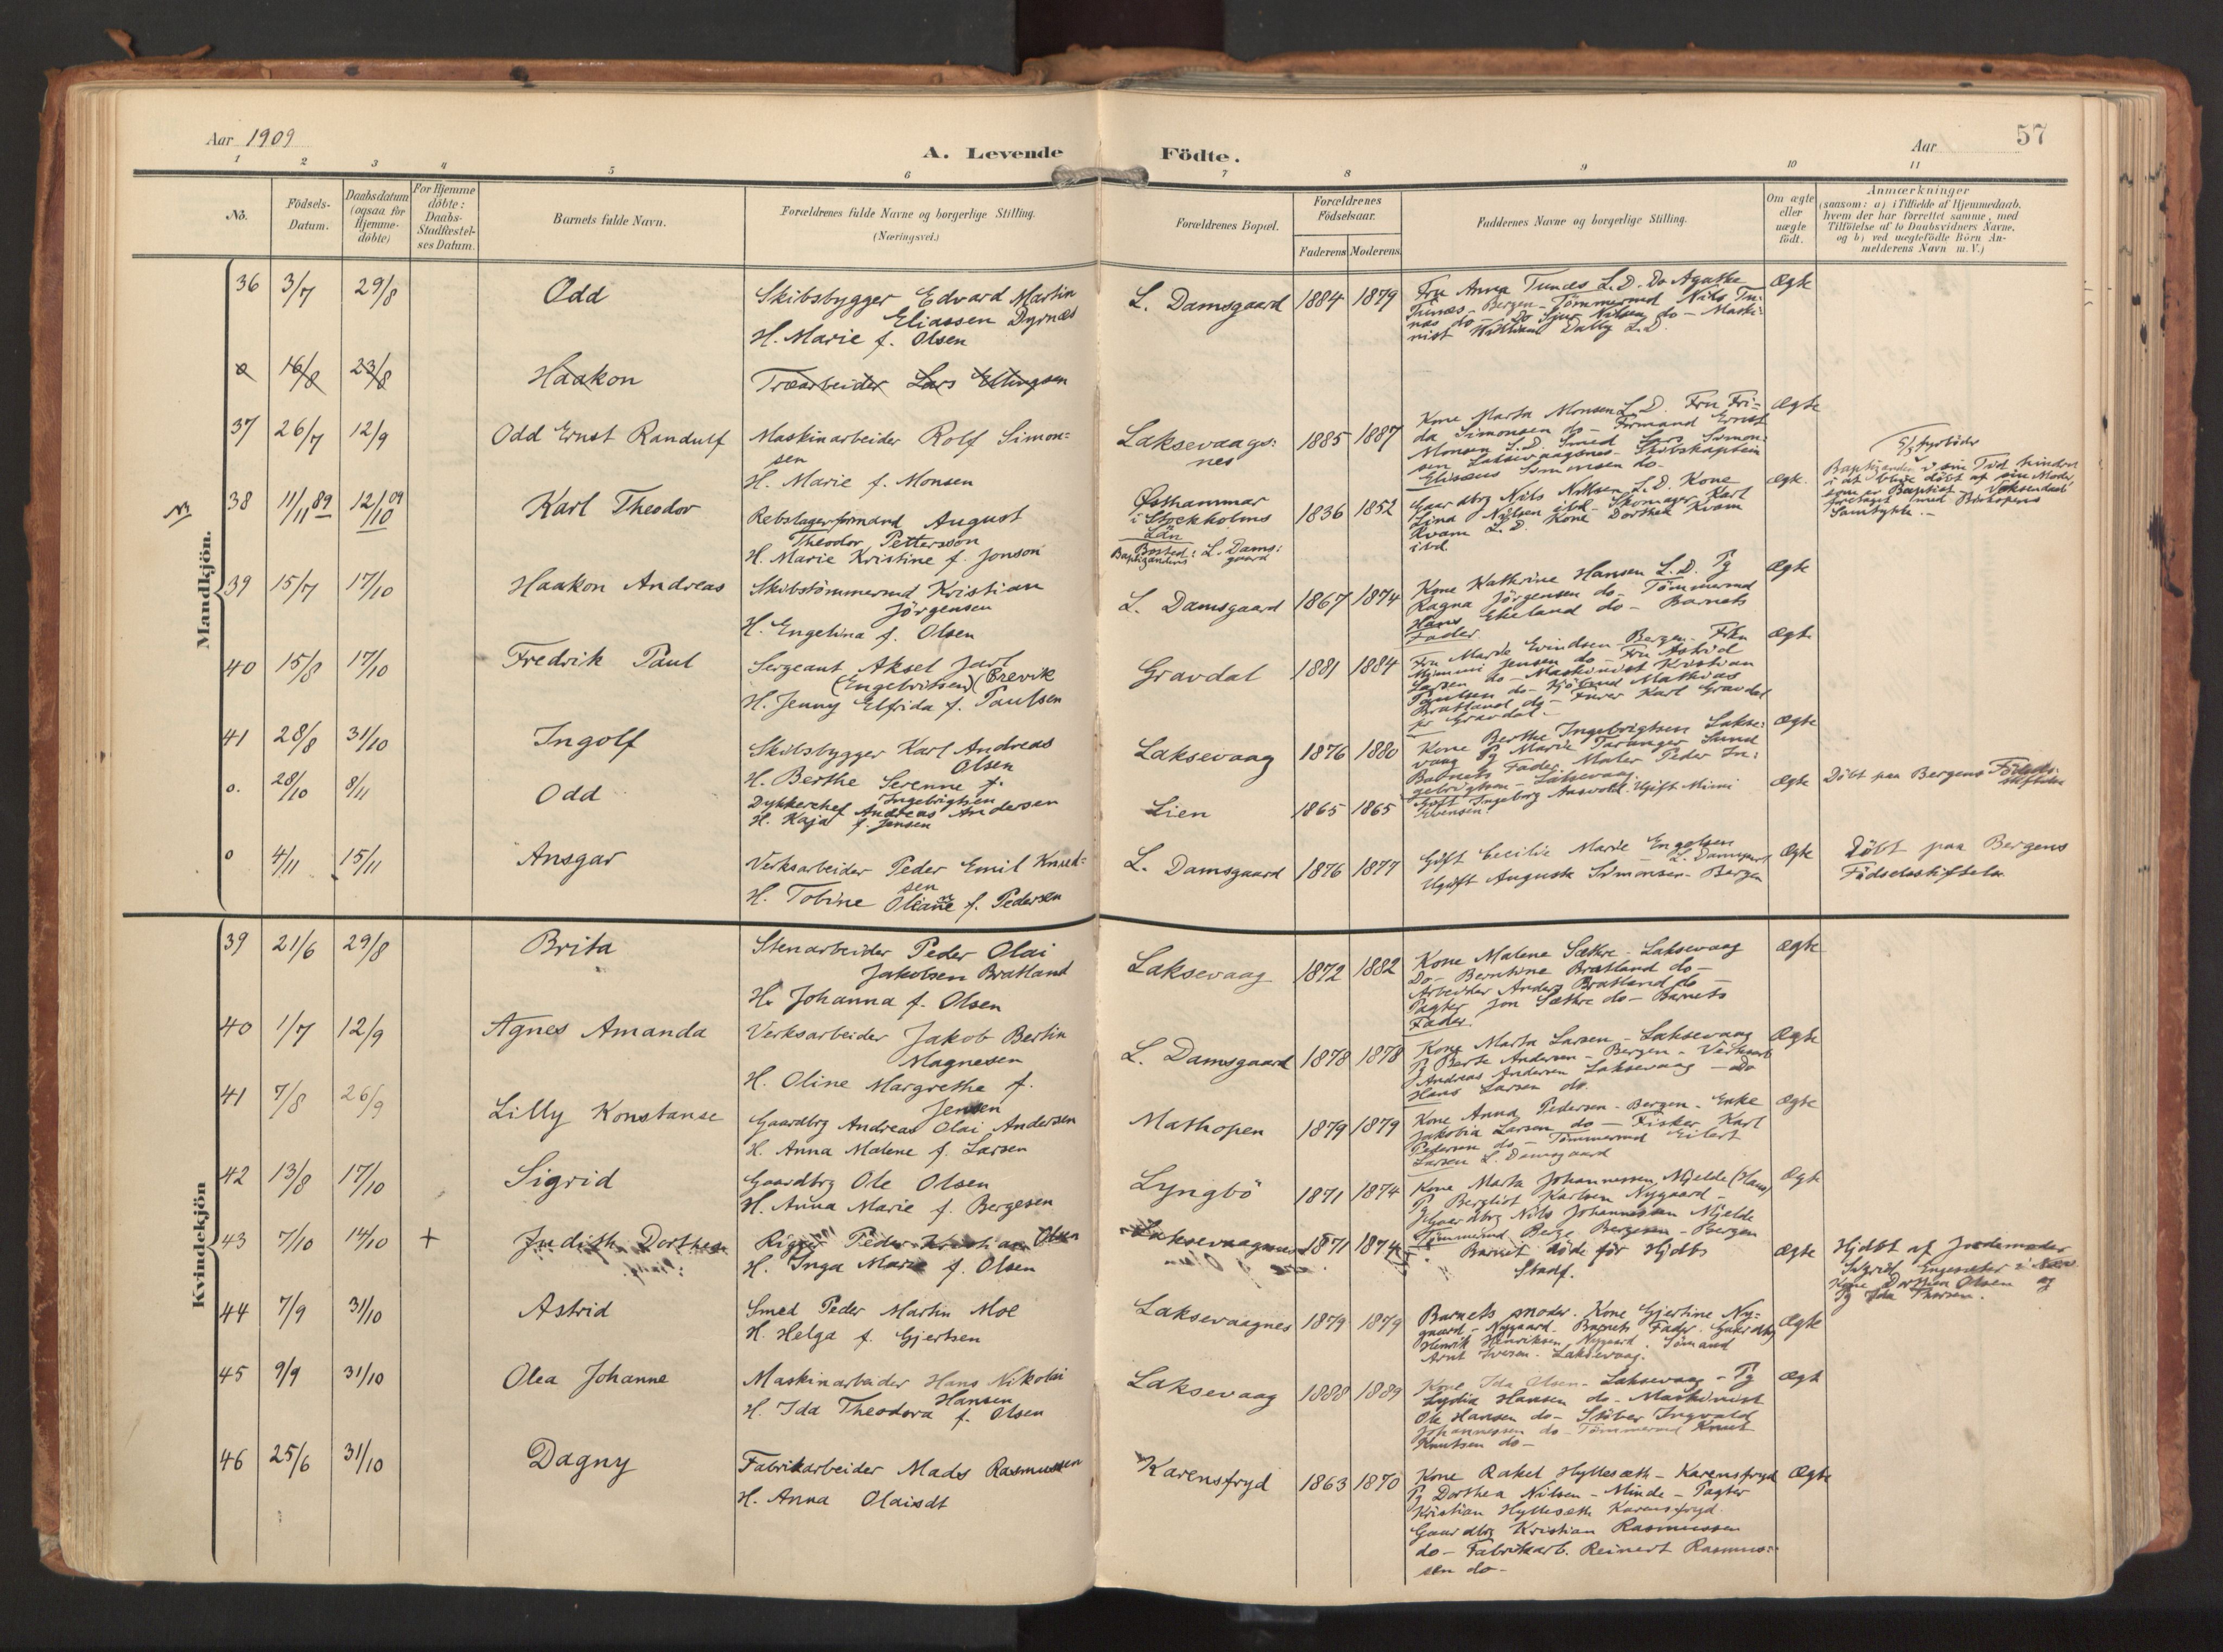 Aar 1909
A. Levende Födte.
Aar
57
1 2 3 4 5 6 7 8 9 10 11
No.
Födsels-
Datum.
Daabsdatum
(ogsaa for
Hjemme-
döbte)
For Hjemme
döbte:
Daabs-
Stadfæstel-
ses Datum.
Barnets fulde Navn.
Forældrenes fulde Navne og borgerlige Stilling.
(Næringsvei.)
Forældrenes Bopæl.
Forældrenes
Födselsaar.
Faderens Moderens
Faddernes Navne og borgerlige Stilling.
Om ægte
eller
uægte
födt.
Anmærkninger
(saasom: a) i Tilfælde af Hjemmedaab.
hvem der har forrettet samme, med
Tilföielse af to Daabsvidners Navne.
og b) ved uægtefödte Börn An-
melderens Navn m.V.)
Mandkjön.
36 3/7 29/8 Odd
Skibsbygger Edvard Martin
Eliassen Dyrnæs
H. Marie f. Olsen
L. Damsgaard 1884 1879
Fru Anna Tunæs L.D. Do Agathe
Tunæs - Bergen - Tömmermd Nils Tu-
næs do - Do Sjur Nilsen do - Maski-
nist William Dalby L.D.
Ægte
o 16/8 23/8 Haakon Træarbeider Lars Ellingsen
37 26/7 12/9 Odd Ernst Randulf
Maskinarbeider Rolf Simon=
sen
H. Marie f. Monsen
Laksevaags:
nes
1885 1887
Kone Marta Monsen L.D. Fru Fri=
da Simonsen do - Formand Ernst
Monsen L.D. Smed Lars Simon:
sen Laksevaagsnes - Skibskaptein
Elisæus Simonsen do -
Ægte
38 11/11 89 12/10 09 Karl Theodor
Rebslagerformand August
Theodor Pettersson
H. Marie Kristine f. Jonson
Østhammar
i Stockholms
Län
Bosted: L. Dams:
Baptizandens gaard
1836 1852
Gaardbrg Nils Nilsen L.D. Kone
Lina Nilsen ibd - Skomager Karl
Kvam L.D. Kone Dorthea Kvam
ibd
Ægte.
Baptizanden i sin Tid hindret
i at blive döbt af sin Moder
som er Baptist - Voksendaab
foretaget med Biskopens
Samtykke. -
39 15/7 17/10 Haakon Andreas
Skibstömmermd Kristian
Jörgensen
H. Engelina f. Olsen
L. Damsgaard 1867 1874
Kone Kathrine Hansen L.D. Pg
Ragna Jörgensen do - Tömmermd
Hans Ekeland do - Barnets
Fader.
Ægte
40 15/8 17/10 Fredrik Paul
Sergeant Aksel Jarl
(Engebritsen) Brevik
H. Jenny Elfrida f. Paulsen
Gravdal 1881 1884
Fru Marie Evindsen Bergen. Frkn
Mimmi Jensen do - Fru Astrid
Larsen do - Maskinist Kristian
Paulsen do - Mathias
Bratland do - Furer Karl Gravdal
pr Gravdal -
Ægte
41 28/8 31/10 Ingolf
Skibsbygger Karl Andreas
Olsen
H. Berthe Serenne f.
Ingebrigtsen
Laksevaag 1876 1880
Kone Berthe Ingebrigtsen Lakse:
vaag Pg Marie Taranger Sund
Barnets Fader. Maler Peder In:
gebrigtsen - Laksevaag.
Ægte
o. 28/10 8/11 Odd
Dykkerchef Andreas Andersen
H. Kaja f. Jensen
Lien 1865 1865
Gift Ingeborg Aasvold. Ugift Mimi
Evensen.
Ægte
Döbt paa Bergens Födsels-
stiftelse
o 4/11 15/11 Ansgar
Verksarbeider Peder Emil Knud=
sen
H. Tobine Oliane f. Pedersen
L. Damsgaard 1876 1877
Gift Cecilie Marie Engelsen
L. Damsgaard
Ugift Augusta Simonsen - Bergen
Ægte
Döbt paa Bergens
Födselsstiftelse
Kvindekjön
39 21/6 29/8 Brita
Stenarbeider Peder Olai
Jakobsen Bratland
H. Johanna f. Olsen
Laksevaag 1872 1882
Kone Malene Sæthre - Laksevaag
Do - Berntine Bratland do -
Arbeider Anders Bratland do -
Pagter Jon Sæthre do - Barnets
Fader.
Ægte
40 1/7 12/9 Agnes Amanda
Verksarbeider Jakob Bertin
Magnesen
H. Oline Margrethe f.
Jensen
L. Damsgaard 1878 1878
Kone Marta Larsen - Laksevaag
Pg Berte Andersen - Bergen - Verksarb
Andreas Andersen Laksevaag - Do
Hans Larsen do.
Ægte
41 7/8 26/9 Lilly Konstanse
Gaardbrg Andreas Olai Andersen
H. Anna Malene f. Larsen
Mathopen 1879 1879
Kone Anna Pedersen - Bergen - Enke
Jakobia Larsen do - Fisker Karl
Pedersen do - Tömmermd Eilert
Larsen L. Damsgaard
Ægte
42 13/8 17/10 Sigrid
Gaardbrg Ole Olsen
H. Anna Marie f. Bergesen
Lyngbö 1871 1874
Kone Marta Johannessen Mjelde (Haus)
Pg Bergliot Karlsen Nygaard -
Gaardbrg Nils Johannessen Mjelde
Tömmermd Berge Bergesen - Bergen
Ægte
43 7/10 14/10 + Judith Dorthea
Rigger Peder Kristian Olsen
H. Inga Marie f. Olsen
Laksevaagnes 1871 1874
Barnet döde för Hjdbs
Stadf.
Ægte
Hjdbt af Jordemoder
Sigrid
Kone Dorthea Olsen og
Pg Ida Thorsen.
44 7/9 31/10 Astrid
Smed Peder Martin Moe
H. Helga f. Gjertsen
Laksevaagnes 1879 1879
Barnets moder. Kone Gjertine Ny=
gaard - Nygaard. Barnets Fader. Gaardbrg
Henrik Henriksen Nygaard. Sömand
Arnt Iversen. Laksevaag.
Ægte
45 9/9 31/10 Olea Johanne
Maskinarbeider Hans Nikolai
Hansen
H. Ida Theodora f. Olsen
Laksevaag 1888 1889
Kone Ida Olsen - Laksevaag - Pg
Lydia Hansen do - Maskinist
Ole Hansen do - Stöber Ingvald
Johannessen do - Tömmermd Knut
Knutsen do -
Ægte
46 25/6 31/10 Dagny
Fabrikarbeider Mads Rasmussen
H. Anna Olaisdt
Karensfryd 1863 1870
Kone Rakel Hyllesæth - Karensfryd
Pg Dorthea Nilsen - Minde - Pagter
Kristian Hyllesæth Karensfryd.
Gaardbrg Kristian Rasmussen
do - Fabrikarb. Reinert Rasmus=
sen do -
Ægte